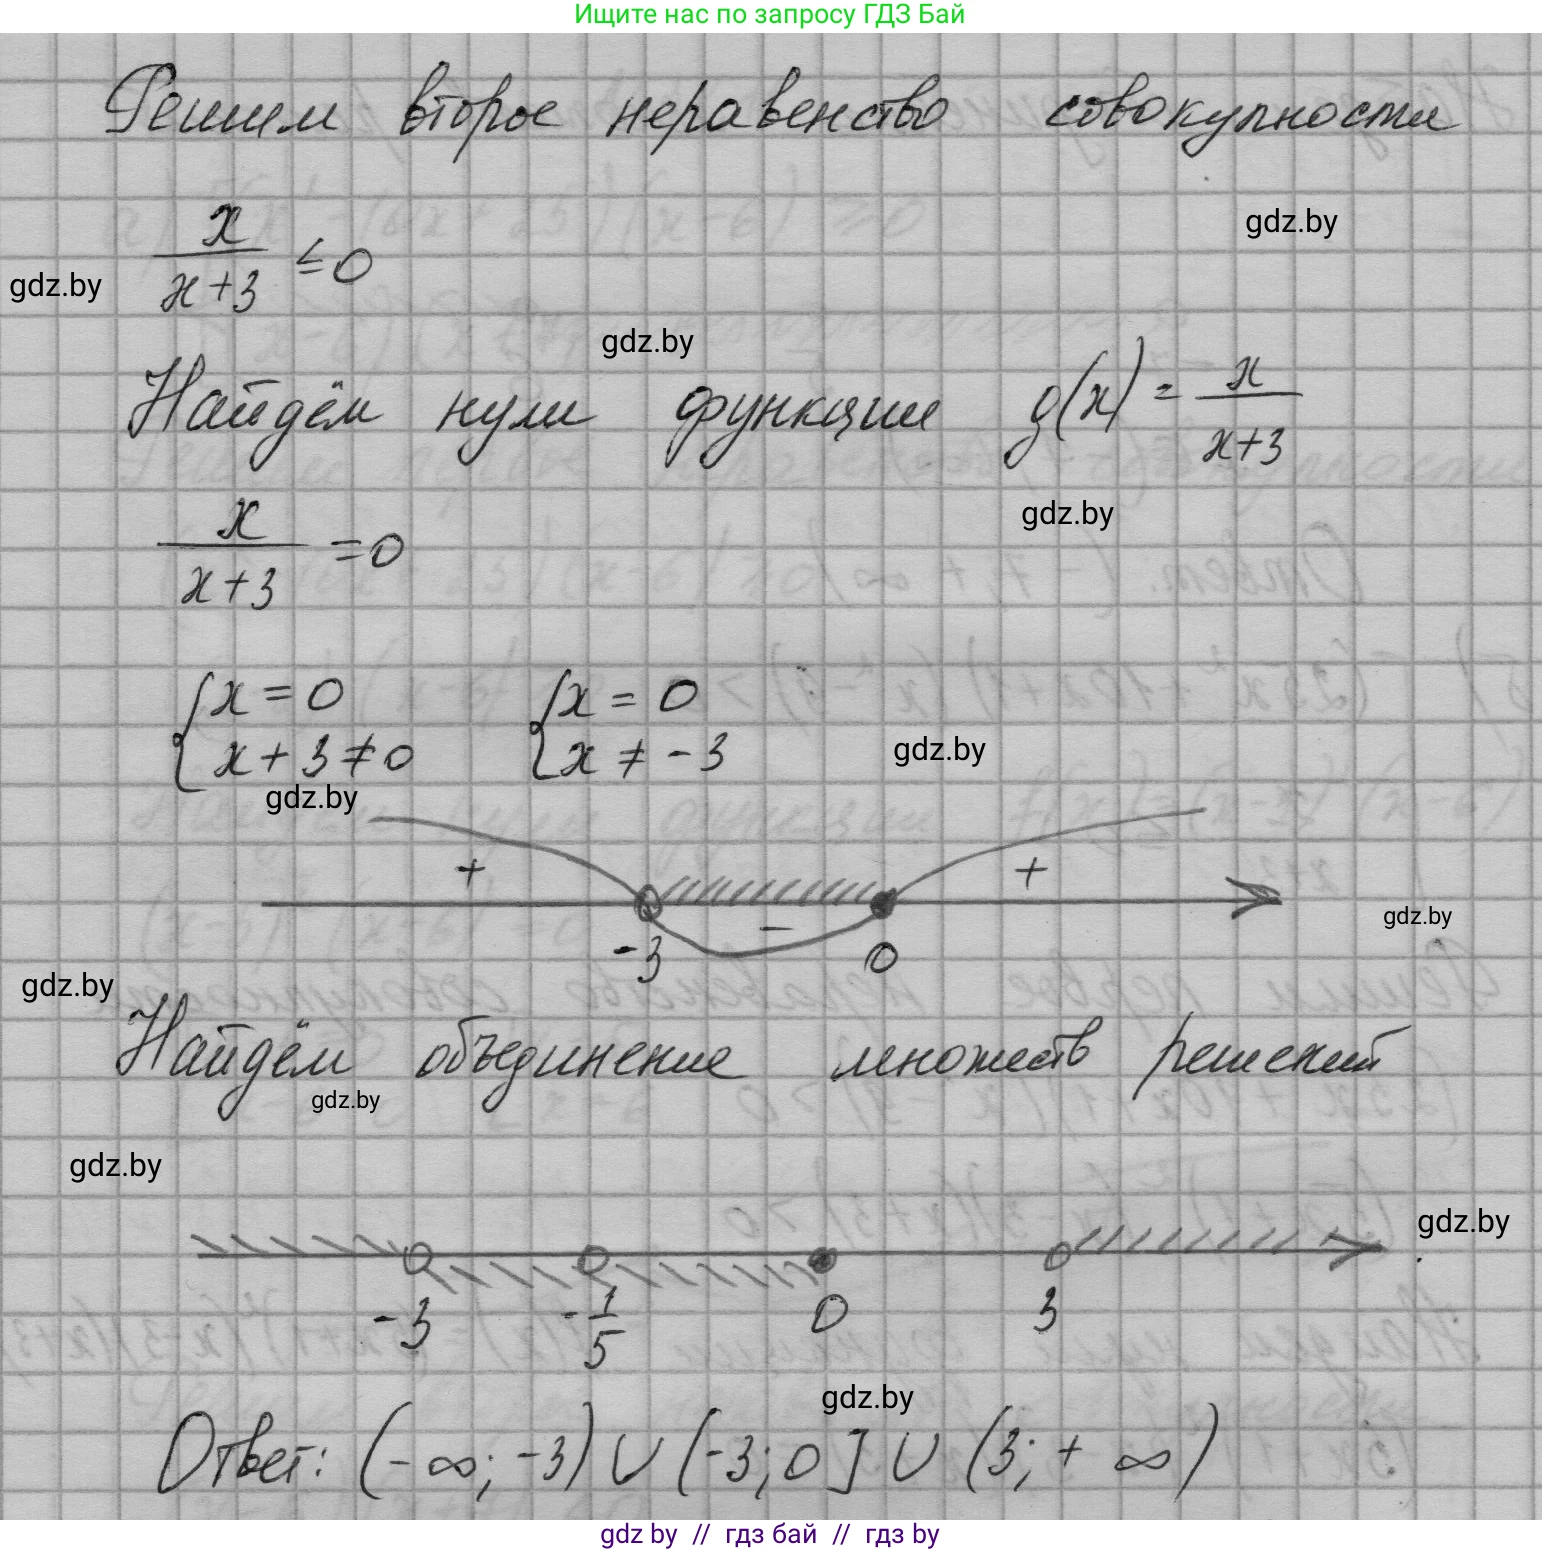 Ищите нас по запросу ГДЗ Бай
Решим второе неравенство совокупности
gdz.by
x/(x+3) ≤ 0
gdz.by
gdz.by
Найдём нули функции g(x) = x/(x+3)
gdz.by
x/(x+3) = 0
{x = 0 {x = 0
{x + 3 ≠ 0 {x ≠ -3
gdz.by
gdz.by
+ - +
-3 0
gdz.by
gdz.by
Найдём объединение множеств решений
gdz.by
gdz.by
gdz.by
-3 -1/5 0 3
gdz.by
Ответ: (-∞; -3) ∪ (-3; 0] ∪ (3; +∞)
gdz by // гдз бай // гдз by